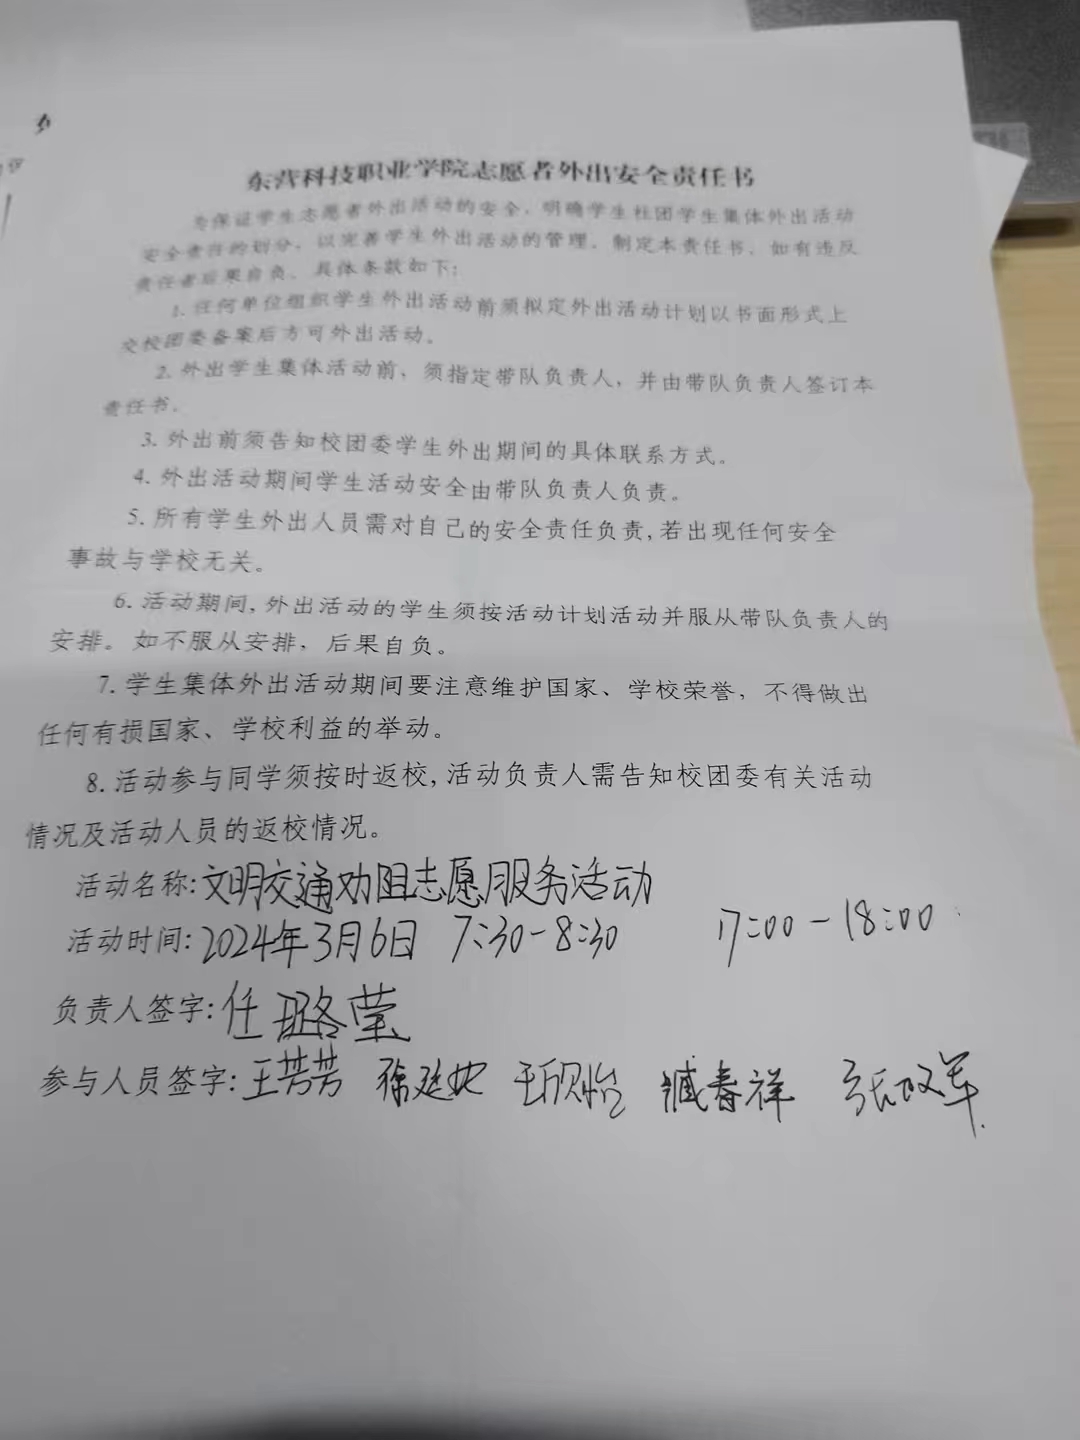 东营科技职业学院志愿者外出安全责任书
为保证学生志愿者外出活动的安全，明确学生社团学生集体外出活动
安全责任的划分，以完善学生外出活动的管理，制定本责任书，如有违反
责任者后果自负。具体条款如下：
1. 任何单位组织学生外出活动前须拟定外出活动计划以书面形式上
交校团委备案后方可外出活动。
2. 外出学生集体活动前、须指定带队负责人，并由带队负责人签订本
责任书。
3. 外出前须告知校团委学生外出期间的具体联系方式。
4. 外出活动期间学生活动安全由带队负责人负责。
5. 所有学生外出人员需对自己的安全责任负责,若出现任何安全
事故与学校无关。
6. 活动期间,外出活动的学生须按活动计划活动并服从带队负责人的
安排。如不服从安排，后果自负。
7. 学生集体外出活动期间要注意维护国家、学校荣誉，不得做出
任何有损国家、学校利益的举动。
8. 活动参与同学须按时返校,活动负责人需告知校团委有关活动
情况及活动人员的返校情况。
活动名称:文明交通劝阻志愿服务活动
活动时间:2024年3月6日 7:30-8:30 17:00-18:00
负责人签字:任璐莹
参与人员签字:王芳芳 徐延 王欣怡 臧春祥 张